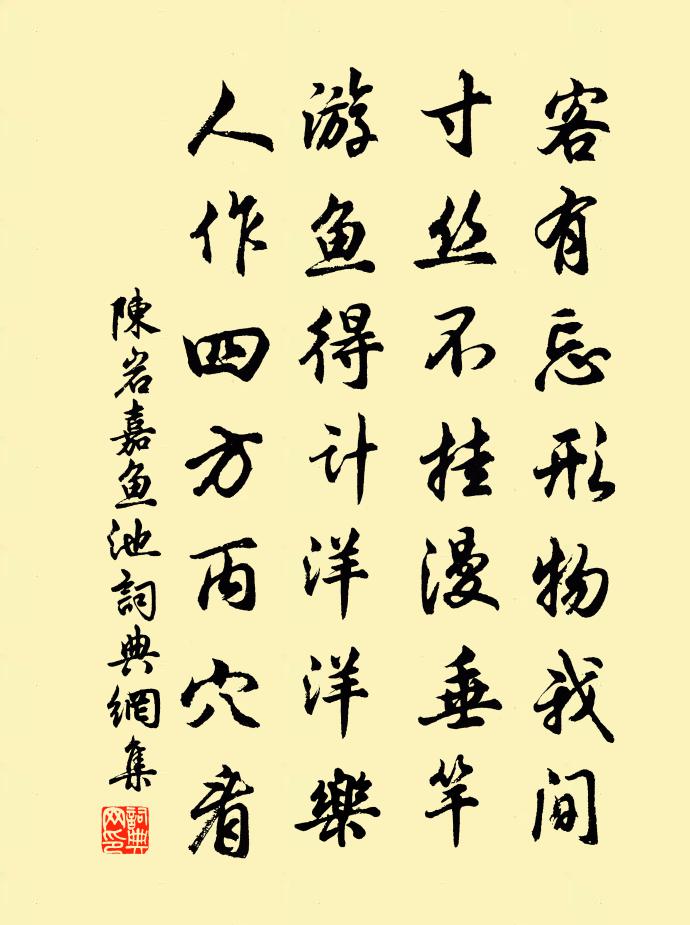 客有忘形物我间
寸丝不挂漫垂竿
游鱼得计洋洋樂
人作四方丙穴看
陳岩嘉鱼池詞典網集
詞典网印